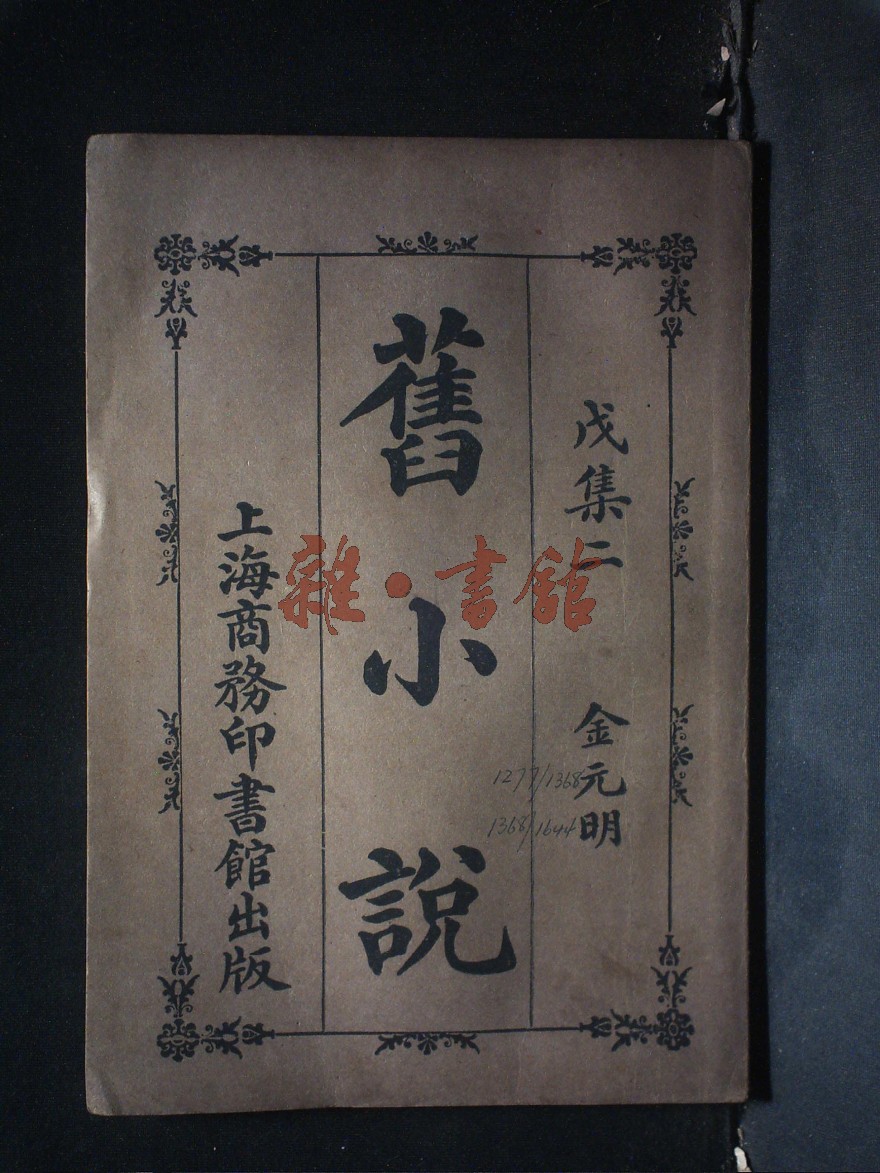 戊集二　金元明
1277/1368
1368/1644
舊小說
上海商務印書館出版
雜·書館